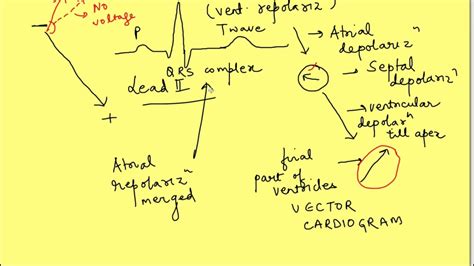 No
voltage
(vent. repolarizⁿ)
P
T wave
→ Atrial
depolarizⁿ
QRS complex
Lead II
→ Septal
depolarizⁿ
+
→ ventricular
depolarⁿ
till apex
Atrial
repolarizⁿ
merged
final
part of
ventricles
VECTOR
CARDIOGRAM